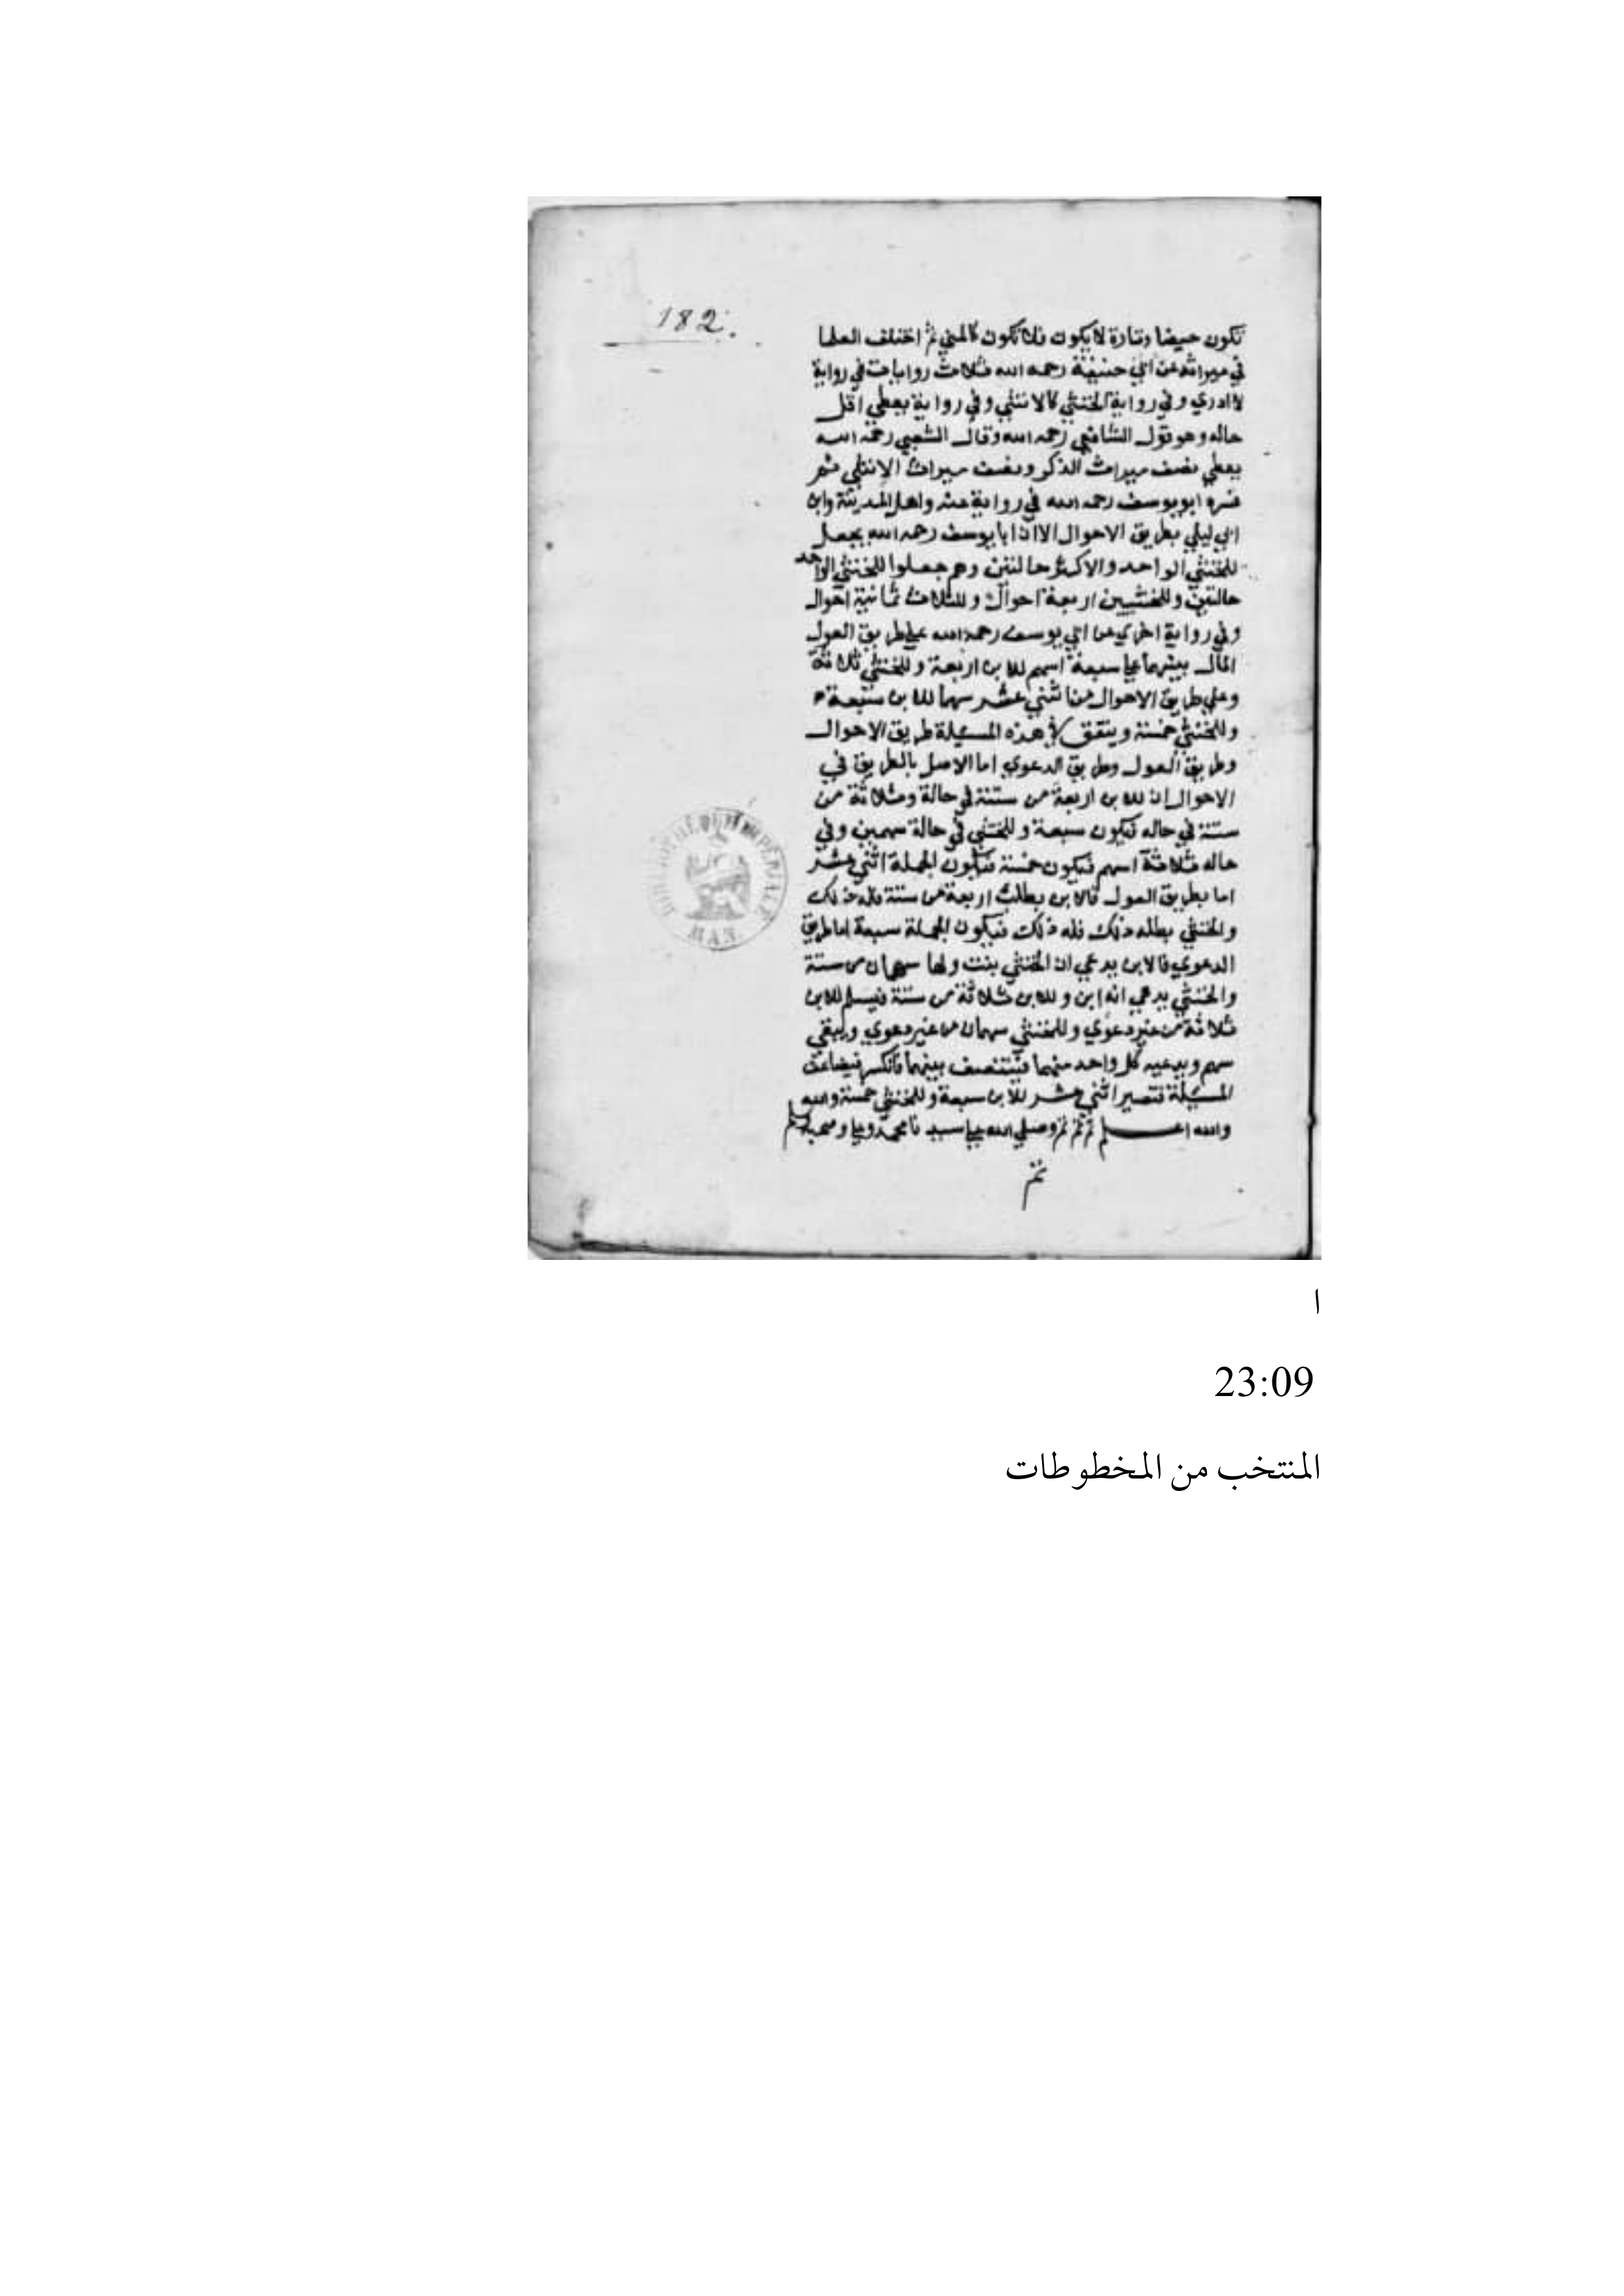 182.
تكون حيضا وتارة لا يكون فلا تكون كالمني ثم اختلف العلما
في ميراثه عن ابي حنيفة رحمه الله ثلاث روايات في رواية
لا ادري وفي رواية الخنثي كالانثي وفي رواية يعطي اقل
حاله وهو قول الشافعي رحمه الله وقال الشعبي رحمه الله
يعطي نصف ميراث الذكر ونصف ميراث الانثي ثم
فسره ابو يوسف رحمه الله في رواية عنه واهل المدينة وابن
ابي ليلي بطريق الاحوال الا ان ابا يوسف رحمه الله يجعل
للخنثي الواحد والاكثر حالتين وهم جعلوا للخنثي الواحد
حالتين وللخنثيين اربعة احوال وللثلاث ثمانية احوال
وفي رواية اخري عن ابي يوسف رحمه الله علي طريق العول
المال بينهما علي سبعة اسهم للابن اربعة وللخنثي ثلاثة
وعلي طريق الاحوال من اثني عشر سهما للابن سبعة
وللخنثي خمسة ويتفق في هذه المسيلة طريق الاحوال
وطريق العول وطريق الدعوي اما الاصل بالطريق في
الاحوال ان للابن اربعة من ستة في حالة وثلاثة من
ستة في حاله فيكون سبعة وللخنثي في حالة سهمين وفي
حاله ثلاثة اسهم فيكون خمسة فيكون الجملة اثني عشر
اما بطريق العول فالابن يطلب اربعة من ستة فله ذلك
والخنثي يطلب ذلك فله ذلك فيكون الجملة سبعة اما طريق
الدعوي فالابن يدعي ان الخنثي بنت ولها سهمان من ستة
والخنثي يدعي انه ابن وللابن ثلاثة من ستة فيسلم للابن
ثلاثة من غير دعوي وللخنثي سهمان من غير دعوي ويبقي
سهم ويدعيه كل واحد منهما فيتنصف بينهما فانكسر فيضاعف
المسيلة فتصير اثني عشر للابن سبعة وللخنثي خمسة والله
والله اعلم تم تم تم وصلي الله علي سيدنا محمد وصحبه وسلم
تم
BIBLIOTHÈQUE IMPÉRIALE
MAN.
ا
23:09
المنتخب من المخطوطات